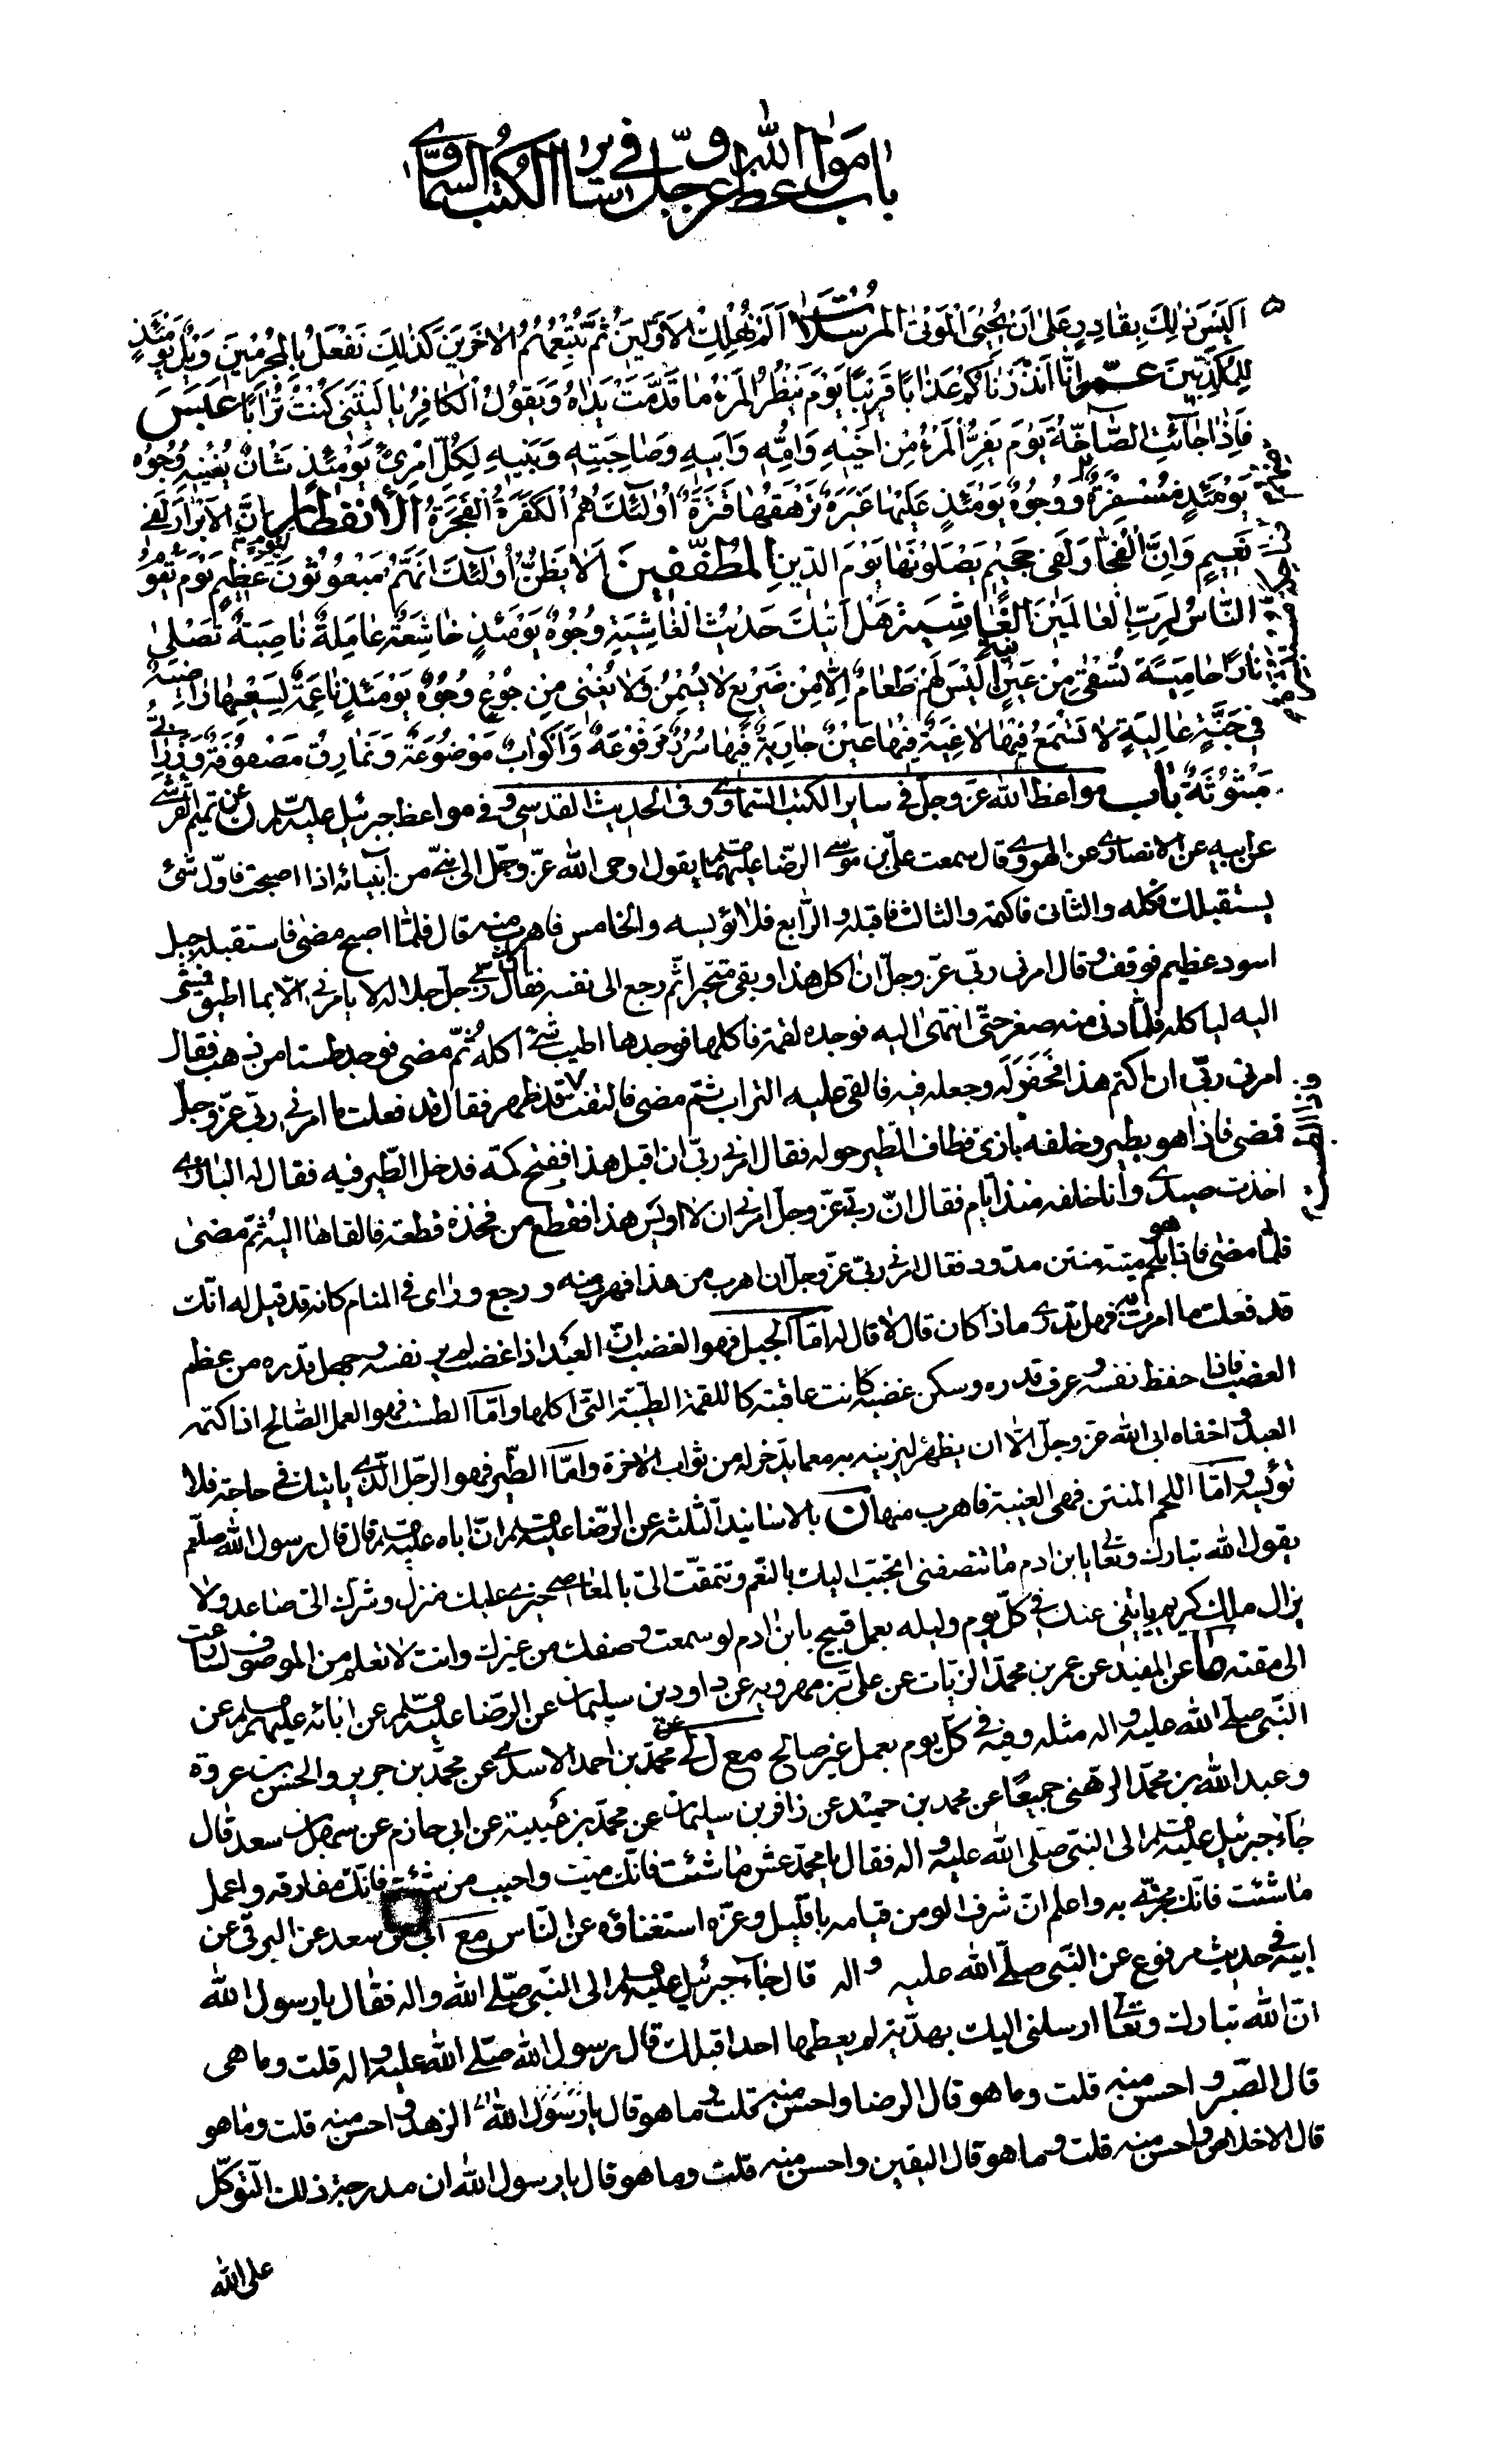 باب مواعظ الله عز وجل في سائر الكتب السماوي
٥
اَلَيْسَ ذٰلِكَ بِقَادِرٍ عَلىٰ اَنْ يُحْيِيَ الْمَوْتىٰ المرسلات اَلَمْ نُهْلِكِ الْاَوَّلِينَ ثُمَّ نُتْبِعُهُمُ الْاٰخِرِينَ كَذٰلِكَ نَفْعَلُ بِالْمُجْرِمِينَ وَيْلٌ يَوْمَئِذٍ
لِلْمُكَذِّبِينَ عمّ اِنَّا اَنْذَرْنَاكُمْ عَذَابًا قَرِيبًا يَوْمَ يَنْظُرُ الْمَرْءُ مَا قَدَّمَتْ يَدَاهُ وَيَقُولُ الْكَافِرُ يَا لَيْتَنِي كُنْتُ تُرَابًا عبس
فَاِذَا جَائَتِ الصَّاخَّةُ يَوْمَ يَفِرُّ الْمَرْءُ مِنْ اَخِيهِ وَاُمِّهِ وَاَبِيهِ وَصَاحِبَتِهِ وَبَنِيهِ لِكُلِّ امْرِئٍ يَوْمَئِذٍ شَانٌ يُغْنِيهِ وُجُوهٌ
يَوْمَئِذٍ مُسْفِرَةٌ وَوُجُوهٌ يَوْمَئِذٍ عَلَيْهَا غَبَرَةٌ تَرْهَقُهَا قَتَرَةٌ اُولٰئِكَ هُمُ الْكَفَرَةُ الْفَجَرَةُ الأنفطار اِنَّ الْاَبْرَارَ لَفِي
نَعِيمٍ وَاِنَّ الْفُجَّارَ لَفِي جَحِيمٍ يَصْلَوْنَهَا يَوْمَ الدِّينِ المطففين اَلَا يَظُنُّ اُولٰئِكَ اَنَّهُمْ مَبْعُوثُونَ لِيَوْمٍ عَظِيمٍ يَوْمَ يَقُومُ
النَّاسُ لِرَبِّ الْعَالَمِينَ الغاشية هَلْ اَتٰيكَ حَدِيثُ الْغَاشِيَةِ وُجُوهٌ يَوْمَئِذٍ خَاشِعَةٌ عَامِلَةٌ نَاصِبَةٌ تَصْلىٰ
نَارًا حَامِيَةً تُسْقىٰ مِنْ عَيْنٍ اٰنِيَةٍ لَيْسَ لَهُمْ طَعَامٌ اِلَّا مِنْ ضَرِيعٍ لَا يُسْمِنُ وَلَا يُغْنِي مِنْ جُوعٍ وُجُوهٌ يَوْمَئِذٍ نَاعِمَةٌ لِسَعْيِهَا رَاضِيَةٌ
فِي جَنَّةٍ عَالِيَةٍ لَا تَسْمَعُ فِيهَا لَاغِيَةً فِيهَا عَيْنٌ جَارِيَةٌ فِيهَا سُرُرٌ مَرْفُوعَةٌ وَاَكْوَابٌ مَوْضُوعَةٌ وَنَمَارِقُ مَصْفُوفَةٌ وَزَرَابِيُّ
مَبْثُوثَةٌ باب مواعظ الله عز وجل في ساير الكتب السماوي وفي الحديث القدسي وفي مواعظ جبرئيل عليه السلم ن عن تميم القرشي
عن ابيه عن الانصاري عن الهروي قال سمعت علي بن موسى الرضا عليهما السلم يقول اوحى الله عز وجل الى نبي من انبيائه اذا اصبحت فاول شئ
يستقبلك فكله والثاني فاكتمه والثالث فاقبله والرابع فلا تؤيسه والخامس فاهرب منه قال فلما اصبح مضى فاستقبله جبل
اسود عظيم فوقف وقال امرني ربي عز وجل ان اكل هذا وبقي متحيرا ثم رجع الى نفسه فقال ان ربي جل جلاله لا يامرني الا بما اطيق فمشى
اليه لياكله فلما دنى منه صغر حتى انتهى اليه فوجده لقمة فاكلها فوجدها اطيب شئ اكله ثم مضى فوجد طستا من ذهب فقال
امرني ربي ان اكتم هذا فحفر له وجعله فيه فالقى عليه التراب ثم مضى فالتفت قد ظهر فقال قد فعلت ما امرني ربي عز وجل
فمضى فاذا هو بطير وخلفه بازي فطاف الطير حوله فقال امرني ربي ان اقبل هذا ففتح كمه فدخل الطير فيه فقال له البازي
اخذت صيدي وانا خلفه منذ ايام فقال ان ربي عز وجل امرني ان لا اويس هذا فقطع من فخذه قطعة فالقاها اليه ثم مضى
فلما مضى فاذا هو بلحم ميتة منتن مدود فقال امرني ربي عز وجل ان اهرب من هذا فهرب منه ورجع وراى في المنام كانه قد قيل له انك
قد فعلت ما امرت به فهل تدري ماذا كان قال لا قال له اما الجبل فهو الغضب ان العبد اذا غضب لم ير نفسه وجهل قدره من عظم
الغضب فاذا حفظ نفسه وعرف قدره وسكن غضبه كانت عاقبته كاللقمة الطيبة التي اكلها واما الطست فهو العمل الصالح اذا كتمه
العبد واخفاه ابى الله عز وجل الا ان يظهره ليزينه به مع ما يدخر له من ثواب الاخرة واما الطير فهو الرجل الذي ياتيك في حاجة فلا
تؤيسه واما اللحم المنتن فهي الغيبة فاهرب منها ن بالاسانيد الثلثة عن الرضا عليه السلم ان اباه عليه السلم قال قال رسول الله صلعم
يقول الله تبارك وتعالى يابن ادم ما تنصفني اتحبب اليك بالنعم وتتمقت الي بالمعاصي خيري عليك منزل وشرك الي صاعد ولا
يزال ملك كريم ياتيني عنك في كل يوم وليله بعمل قبيح يابن ادم لو سمعت وصفك من غيرك وانت لا تعلم من الموصوف لسارعت
الى مقته ما عن المفيد عن عمر بن محمد الزيات عن علي بن مهرويه عن داود بن سليمان عن الرضا عليه السلم عن ابائه عليهم السلم عن
النبي صلى الله عليه واله مثله وفيه في كل يوم بعمل غير صالح مع ل لي عن محمد بن احمد الاسدي عن محمد بن جرير والحسن بن عروة
وعبد الله بن محمد الوهبي جميعا عن محمد بن حميد عن زافر بن سليمان عن محمد بن عيينة عن ابي حازم عن سهل بن سعد قال
جاء جبرئيل عليه السلم الى النبي صلى الله عليه واله فقال يا محمد عش ما شئت فانك ميت واحبب من شئت فانك مفارقه واعمل
ما شئت فانك مجزي به واعلم ان شرف المومن قيامه بالليل وعزه استغناؤه عن الناس مع ابي عن سعد عن البرقي عن
ابيه في حديث مرفوع عن النبي صلى الله عليه واله قال جاء جبرئيل عليه السلم الى النبي صلى الله واله فقال يا رسول الله
ان الله تبارك وتعالى ارسلني اليك بهدية لم يعطها احدا قبلك قال رسول الله صلى الله عليه واله قلت وما هي
قال الصبر واحسن منه قلت وما هو قال الرضا واحسن منه قلت وما هو قال يا رسول الله الزهد واحسن منه قلت وما هو
قال الاخلاص واحسن منه قلت وما هو قال اليقين واحسن منه قلت وما هو قال يا رسول الله ان مدرجة ذلك التوكل
على الله